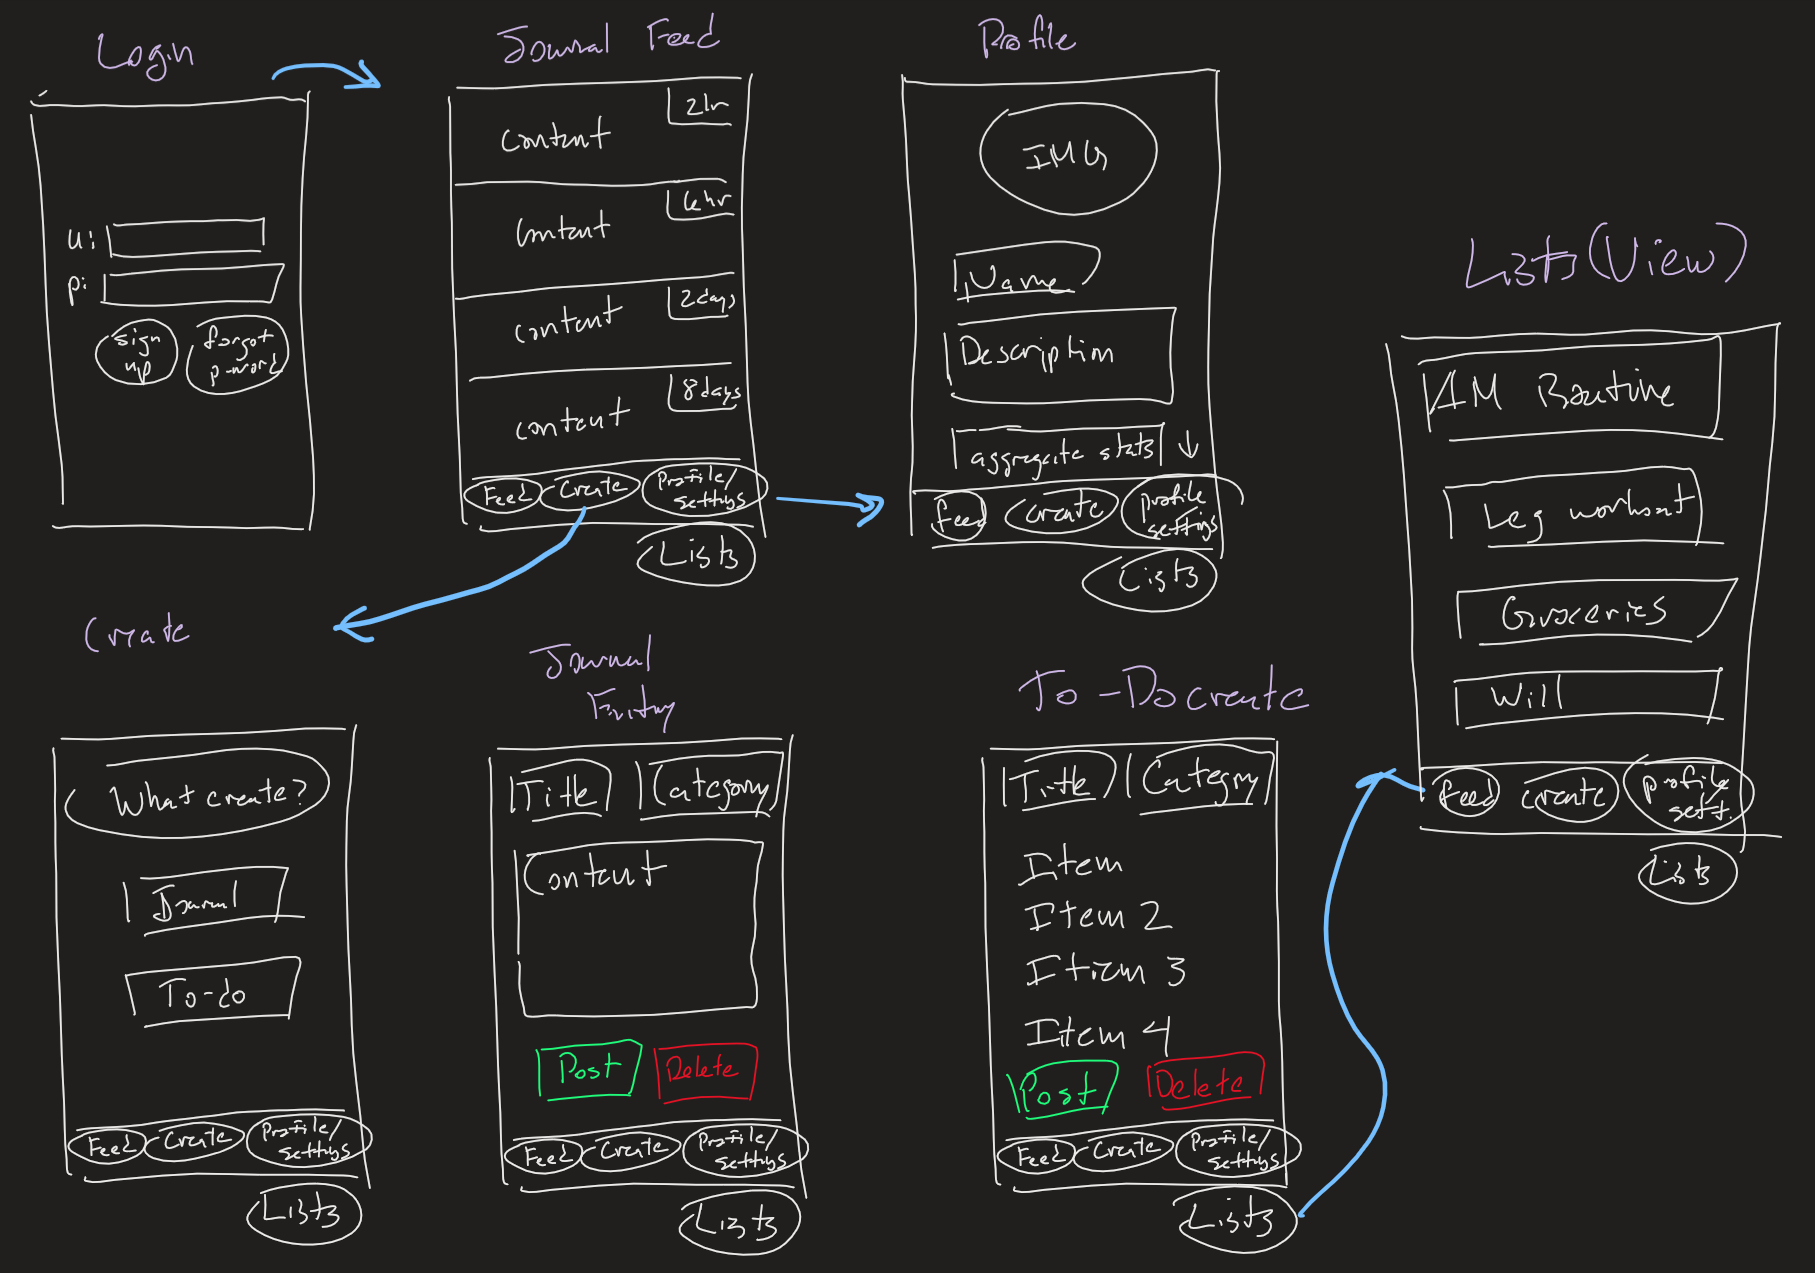 Login
u:
p:
sign
up
forgot
p-word
Journal Feed
content
2hr
content
6hr
content
2days
content
8days
Feed
Create
Profile/
settings
Lists
Profile
IMG
Name
Description
aggregate stats
feed
create
profile
settings
Lists
Lists (View)
AM Routine
Leg workout
Groceries
Will
feed
create
profile
sett.
Lists
Create
What create?
Journal
To-do
Feed
Create
Profile/
settings
Lists
Journal
Entry
Title
Category
Content
Post
Delete
Feed
Create
Profile/
settings
Lists
To-Do create
Title
Category
Item
Item 2
Item 3
Item 4
Post
Delete
Feed
Create
Profile/
settings
Lists